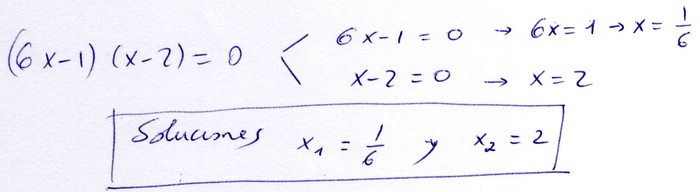 (6x-1)(x-2)=0 < 6x-1=0 → 6x=1 → x=1/6
x-2=0 → x=2
Soluciones x₁=1/6 y x₂=2